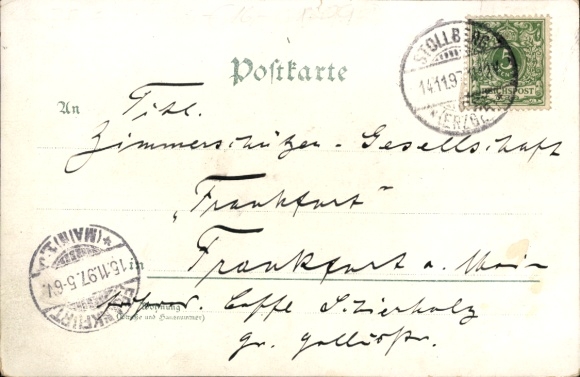 Postkarte
STOLLBERG
14.11.97.
(ERZG.)
5
REICHSPOST
An
Titl.
Zimmerschützen-Gesellschaft
„Frankfurt"
in Frankfurt a. Main
FRANKFURT
15.11.97. 5-6
* (MAIN) 1.
Wohnung
(Straße und Hausnummer)
Caffe
gr.